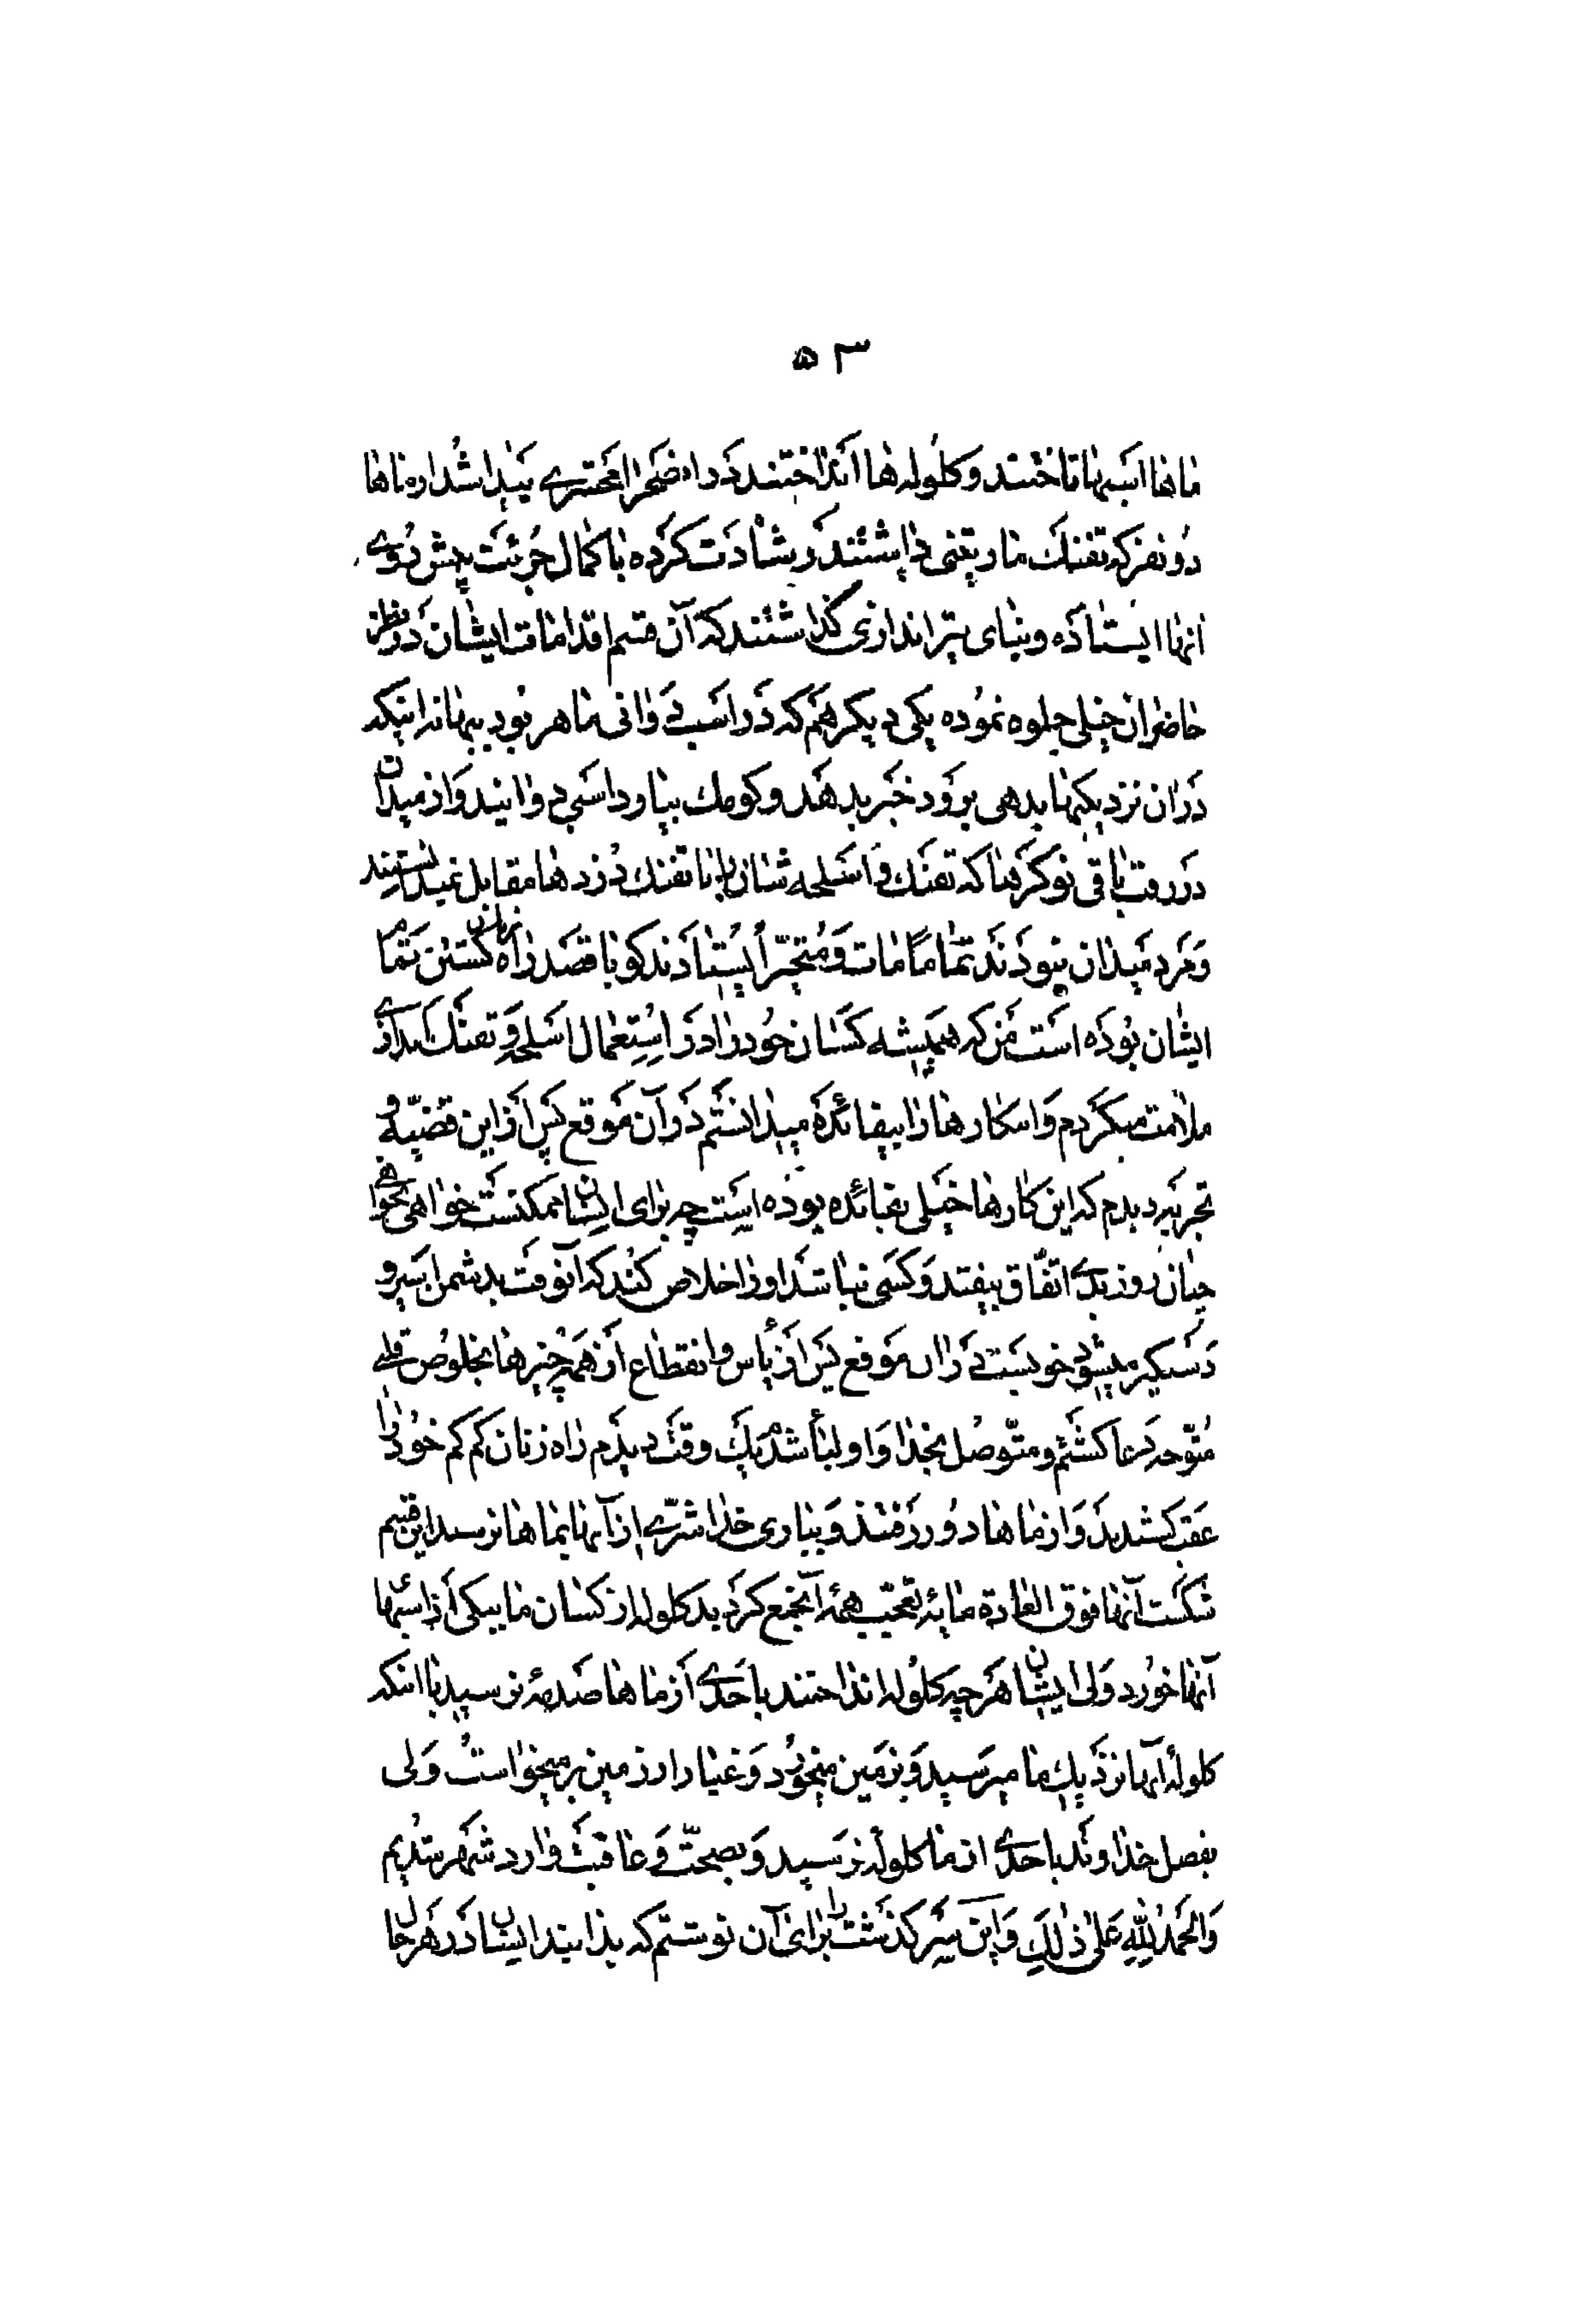 ۵۳
ماها اسبها تاختند و کلوله ها انداختند در ان صحرا محشری پیدا شد از ماها
دو نفر که تفنك مارتینی داشتند رشادت کرده با کمال جرئت پیش روی
آنها ایستاده و بنای تیراندازی گذاشتند که آن قسم اقدامات ایشان در نظر
حاضران خیلی جلوه نموده یکی دیگر هم که در اسب دوانی ماهر بود ببهانه اینکه
در ان نزدیکیها بدهی برود خبر بدهد و کومك بیاورد اسب دوانید و از میدان
در رفت باقی نوکرها که تفنك و اسلحه شان با تفنك دزدها مقابل نمیدانستند
و مرد میدان نبودند تماما مات و متحیر ایستادند کویا قصد راه زنان کشتن تمام
ایشان بوده است من که همیشه کسان خود را در استعمال اسلحه و تفنك اندازی
ملامت میکردم و اینکارها را بیفائده میدانستم در آن موقع پس از این قضیه و
تجربه دیدم که این کارها خیلی بفائده بوده است چه برای انسان ممکنست خواهی نخواهی
چنان روز بدی اتفاق بیفتد و کسی نباشد او را خلاص کند که آنوقت بدشمن اسیر و
دستگیر میشود خود بست در ان موقع پس از یأس و انقطاع از همه چیزها بخلوص قلب
متوجه دعا کشتم و متوصل بخدا و اولیاء شدم یك وقت دیدم راه زنان کم کم خود را
عقب کشیدند و از ماها دور رفتند و بیاری خدا شری از آنها بماها نرسید این قسم
شکست آنها فوق العادة مایهٔ تعجب همهٔ آنجمع کردید کلوله از کسان ما بیکی از اسبهای
آنها خورد ولی ایشان هر چه کلوله انداختند باحدی از ماها صدمه نرسید با اینکه
کلولهٔ آنها نزدیك ما میرسید و بزمین میخورد و غبار از زمین برمیخواست ولی
بفضل خداوند باحدی از ما کلوله نرسید و بصحت و عافیت وارد شهر شدیم
وَالْحَمْدُ لِلّٰهِ عَلٰی ذٰلِكَ و این سرگذشت را برای آن نوشتم که بدانند انسان در هر حال